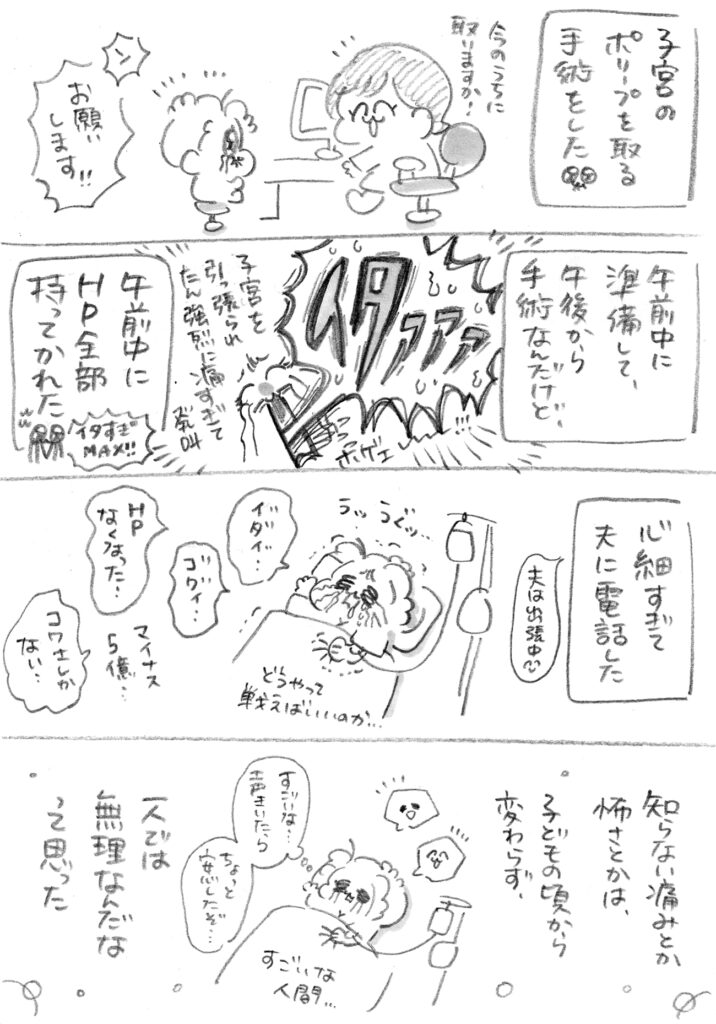 子宮の
ポリープを取る
手術をした
今のうちに
取りますか!
ン
お願い
します!!
午前中に
準備して、
午後から
手術なんだけど、
イタァァァ
ホゲェ
子宮を
引っ張られ
たん強烈に痛すぎて
発叫
午前中に
HP全部
持ってかれた
イタすぎ
MAX!!
心細すぎて
夫に電話した
夫は出張中
ウッ うぐッ…
イダイ…
ゴワイ…
HP
なくなった…
マイナス
5億…
コワさしか
ない…
どうやって
戦えばいいのか…
知らない痛みとか
怖さとかは、
子どもの頃から
変わらず、
すごいな…
声きいたら
ちょっと
安心したぞ…
すごいな
人間…
一人では
無理なんだな
って思った